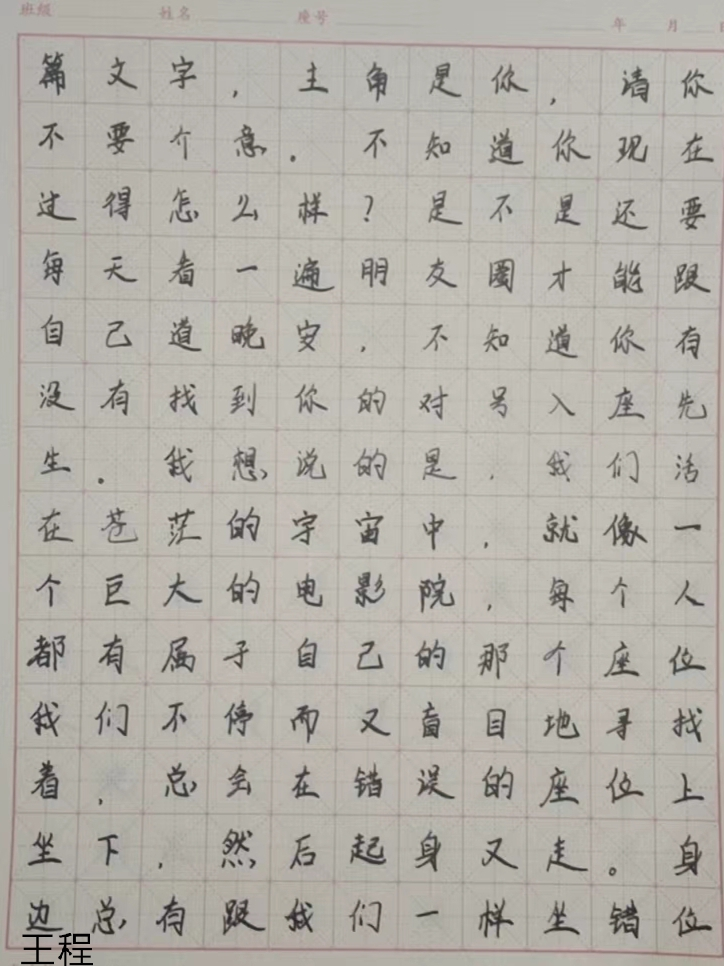 班级 姓名 座号 年 月
篇文字，主角是你，请你
不要个意。不知道你现在
过得怎么样？是不是还要
每天看一遍朋友圈才能跟
自己道晚安，不知道你有
没有找到你的对号入座先
生。我想说的是，我们活
在苍茫的宇宙中，就像一
个巨大的电影院，每个人
都有属于自己的那个座位
我们不停而又盲目地寻找
着，总会在错误的座位上
坐下，然后起身又走。身
边总有跟我们一样坐错位
王程